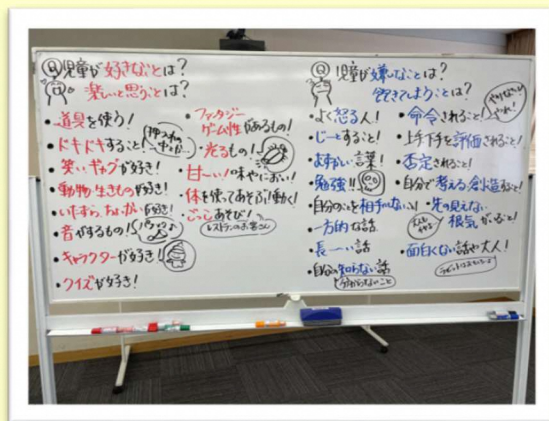 Q 児童が好きなことは?
楽しいと思うことは?
・道具を使う!
・ドキドキすること!
・笑い・ギャグが好き!
・動物・生きもの好き!
・いたずら、ちょっかい好き!
・音がするもの!
・キャラクターが好き!
・クイズが好き!
・ファンタジー
ゲーム性があるもの!
・光るもの!
・甘〜い!味やにおい!
・体を使ってあそぶ!動く!
・ごっこあそび!
レストランのお客さん
Q 児童が嫌いなことは?
飽きてしまうことは?
・よく怒る人!
・じーとすること!
・むずかしい言葉!
・勉強!!
・自分のことを相手のない人!
・一方的な話
・長〜い話
・自分の知らない話
分からないこと
・命令されること!
やりなさい
やれ!
・上手下手を評価されること!
・否定されること!
・自分で考える、創造すること!
・先の見えない
根気がいること!
・面白くない話や大人!